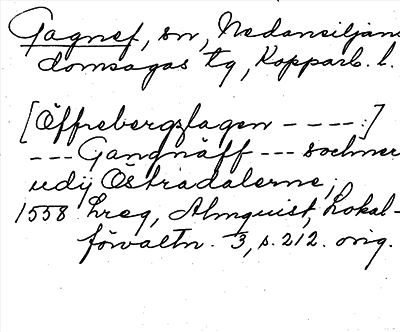 Gagnef, sn, Nedansiljans
domsagas tg, Kopparb. l.
[Öffrebergslagen ----:]
--- Gångnäff --- sochner
udij Östradalerne;
1558 hreg, Almquist, Lokal-
förvaltn. 3, s. 212. orig.